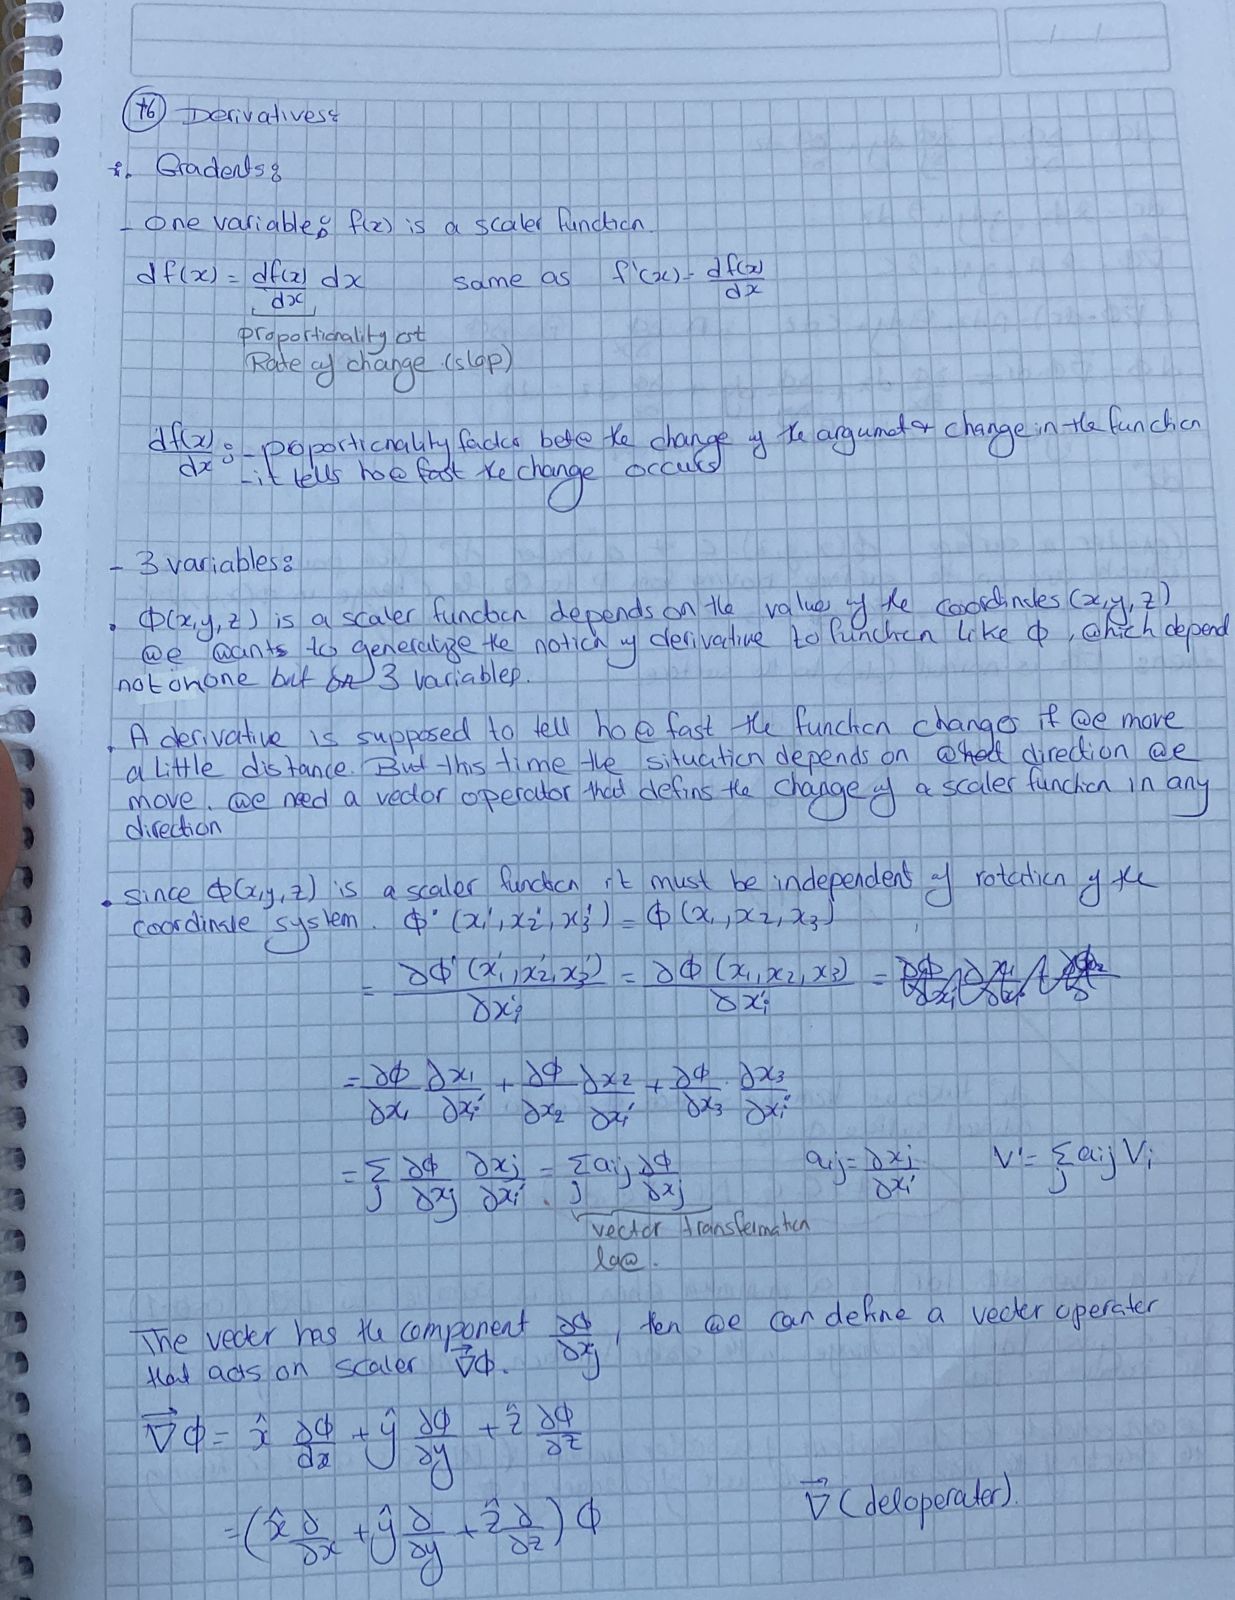 76 Derivatives:
i. Gradents:
- One variable: f(x) is a scaler function.
df(x) = df(x)/dx dx same as f'(x) = df(x)/dx
proportionality ct
Rate of change (slop)
df(x)/dx : - poportionality factor betw the change of the argumet & change in the function
- it tells how fast the change occurs
- 3 variables:
. Φ(x,y,z) is a scaler function depends on the value of the coordindes (x,y,z)
we wants to generalize the notion of derivative to function like Φ, which depend
not on one but on 3 variables.
. A derivative is supposed to tell how fast the function changes if we move
a little distance. But this time the situation depends on what direction we
move. we need a vector operator that defins the change of a scaler function in any
direction
. since Φ(x,y,z) is a scaler function it must be independent of rotation of the
coordinate system. Φ'(x₁',x₂',x₃') = Φ(x₁,x₂,x₃)
= ∂Φ'(x₁',x₂',x₃')/∂xᵢ' = ∂Φ(x₁,x₂,x₃)/∂xᵢ' =
= ∂Φ/∂x₁ ∂x₁/∂xᵢ' + ∂Φ/∂x₂ ∂x₂/∂xᵢ' + ∂Φ/∂x₃ · ∂x₃/∂xᵢ'
= Σⱼ ∂Φ/∂xⱼ ∂xⱼ/∂xᵢ' = Σⱼ aᵢⱼ ∂Φ/∂xⱼ aᵢⱼ = ∂xⱼ/∂xᵢ' V' = Σⱼ aᵢⱼ Vᵢ
vector transformation
law.
The vector has the component ∂Φ/∂xⱼ, ten we can define a vector operater
that acts on scaler ∇⃗Φ.
∇⃗Φ = x̂ ∂Φ/dx + ŷ ∂Φ/∂y + ẑ ∂Φ/∂z
= (x̂ ∂/∂x + ŷ ∂/∂y + ẑ ∂/∂z) Φ ∇⃗ (del operater).